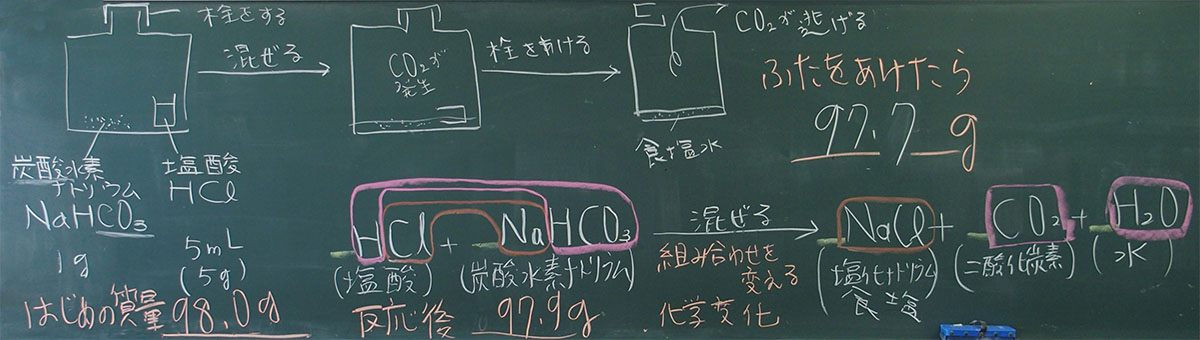 栓をする
混ぜる
CO₂が
発生
栓をあける
CO₂が逃げる
ふたをあけたら
97.7g
食塩水
炭酸水素
ナトリウム
NaHCO₃
1g
塩酸
HCl
5mL
(5g)
はじめの質量 98.0g
HCl + NaHCO₃
(塩酸) (炭酸水素ナトリウム)
反応後 97.9g
混ぜる
組み合わせを
変える
化学変化
NaCl + CO₂ + H₂O
(塩化ナトリウム) (二酸化炭素) (水)
食塩